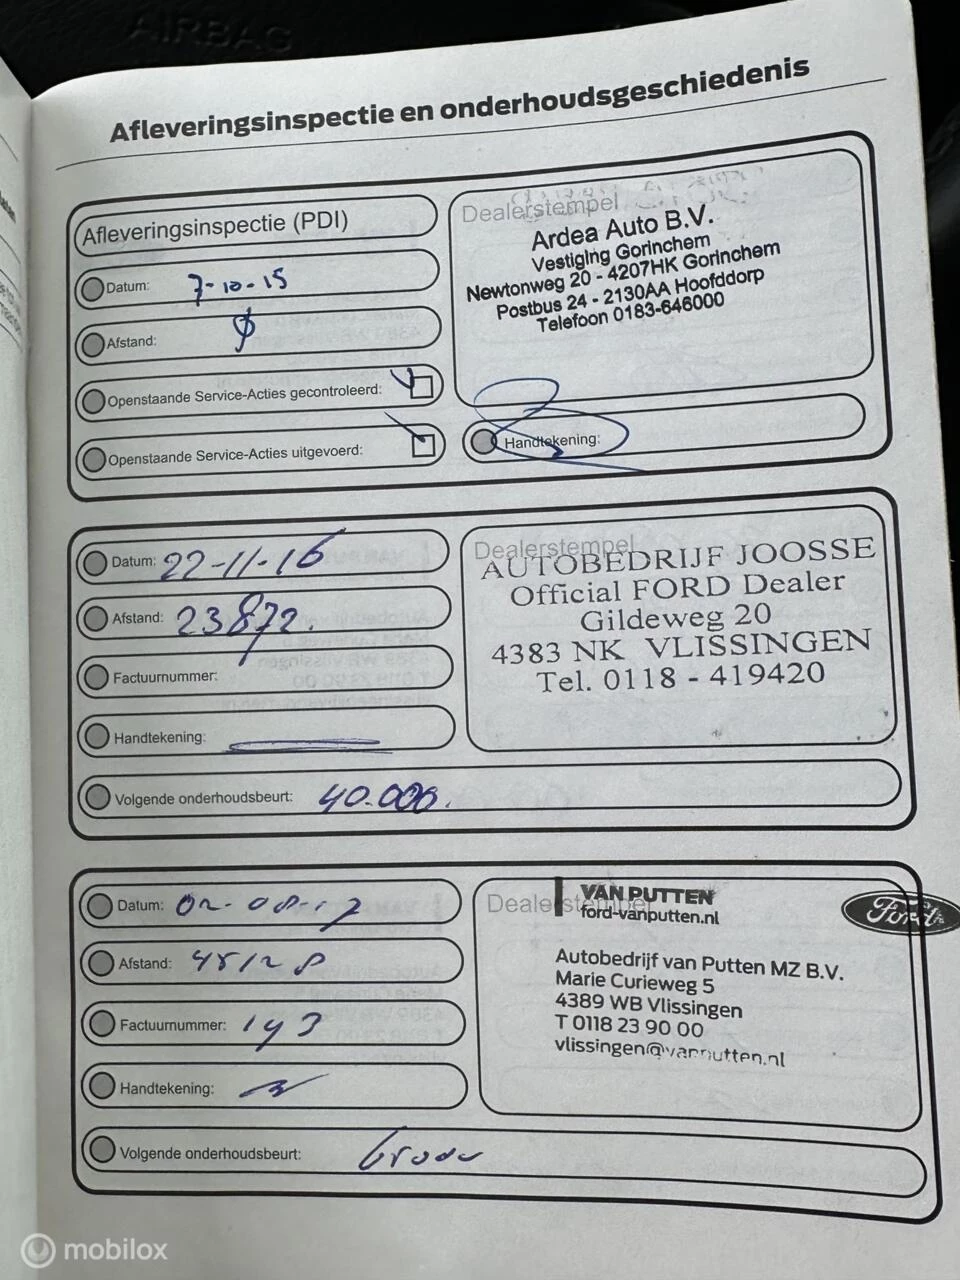 AIRBAG
Afleveringsinspectie en onderhoudsgeschiedenis
Afleveringsinspectie (PDI)
Datum: 7-10-15
Afstand:
Openstaande Service-Acties gecontroleerd:
Openstaande Service-Acties uitgevoerd:
Dealerstempel
Ardea Auto B.V.
Vestiging Gorinchem
Newtonweg 20 - 4207HK Gorinchem
Postbus 24 - 2130AA Hoofddorp
Telefoon 0183-646000
Handtekening:
Datum: 22-11-16
Afstand: 23872.
Factuurnummer:
Handtekening:
Volgende onderhoudsbeurt: 40.000.
Dealerstempel
AUTOBEDRIJF JOOSSE
Official FORD Dealer
Gildeweg 20
4383 NK VLISSINGEN
Tel. 0118 - 419420
Datum: 02-08-17
Afstand: 45128
Factuurnummer: 143
Handtekening:
Volgende onderhoudsbeurt:
Dealerstempel
VAN PUTTEN
ford-vanputten.nl
Ford
Autobedrijf van Putten MZ B.V.
Marie Curieweg 5
4389 WB Vlissingen
T 0118 23 90 00
vlissingen@vanputten.nl
mobilox